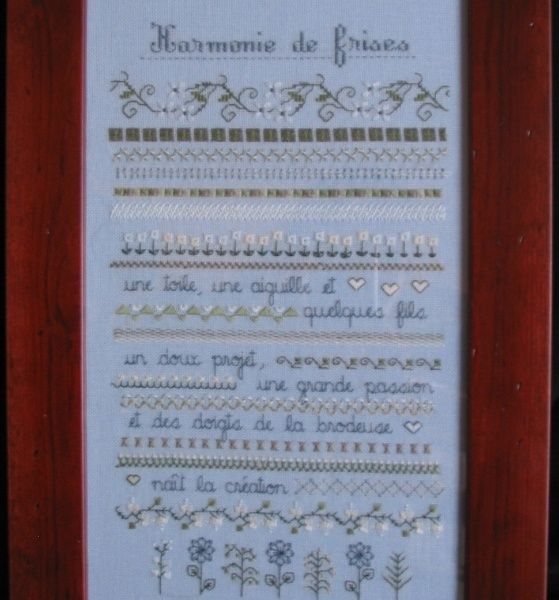 Harmonie de Frises
une toile, une aiguille et
quelques fils
un doux projet,
une grande passion
et des doigts de la brodeuse
naît la création